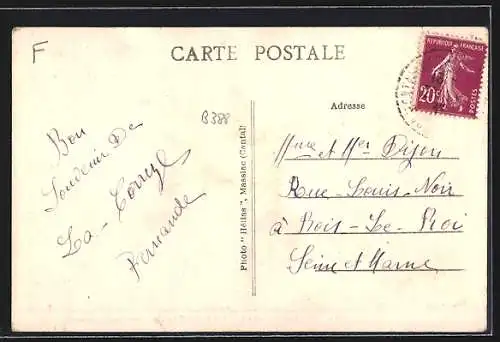 F
CARTE POSTALE
REPUBLIQUE FRANÇAISE
20c
POSTES
B388
Adresse
Bon
Souvenir De
La - Corrèze
Fernande
Photo " Hélias ", Massiac (Cantal)
Mme et Mr Dijon
Rue Louis-Noir
à Bois-Le-Roi
Seine et Marne